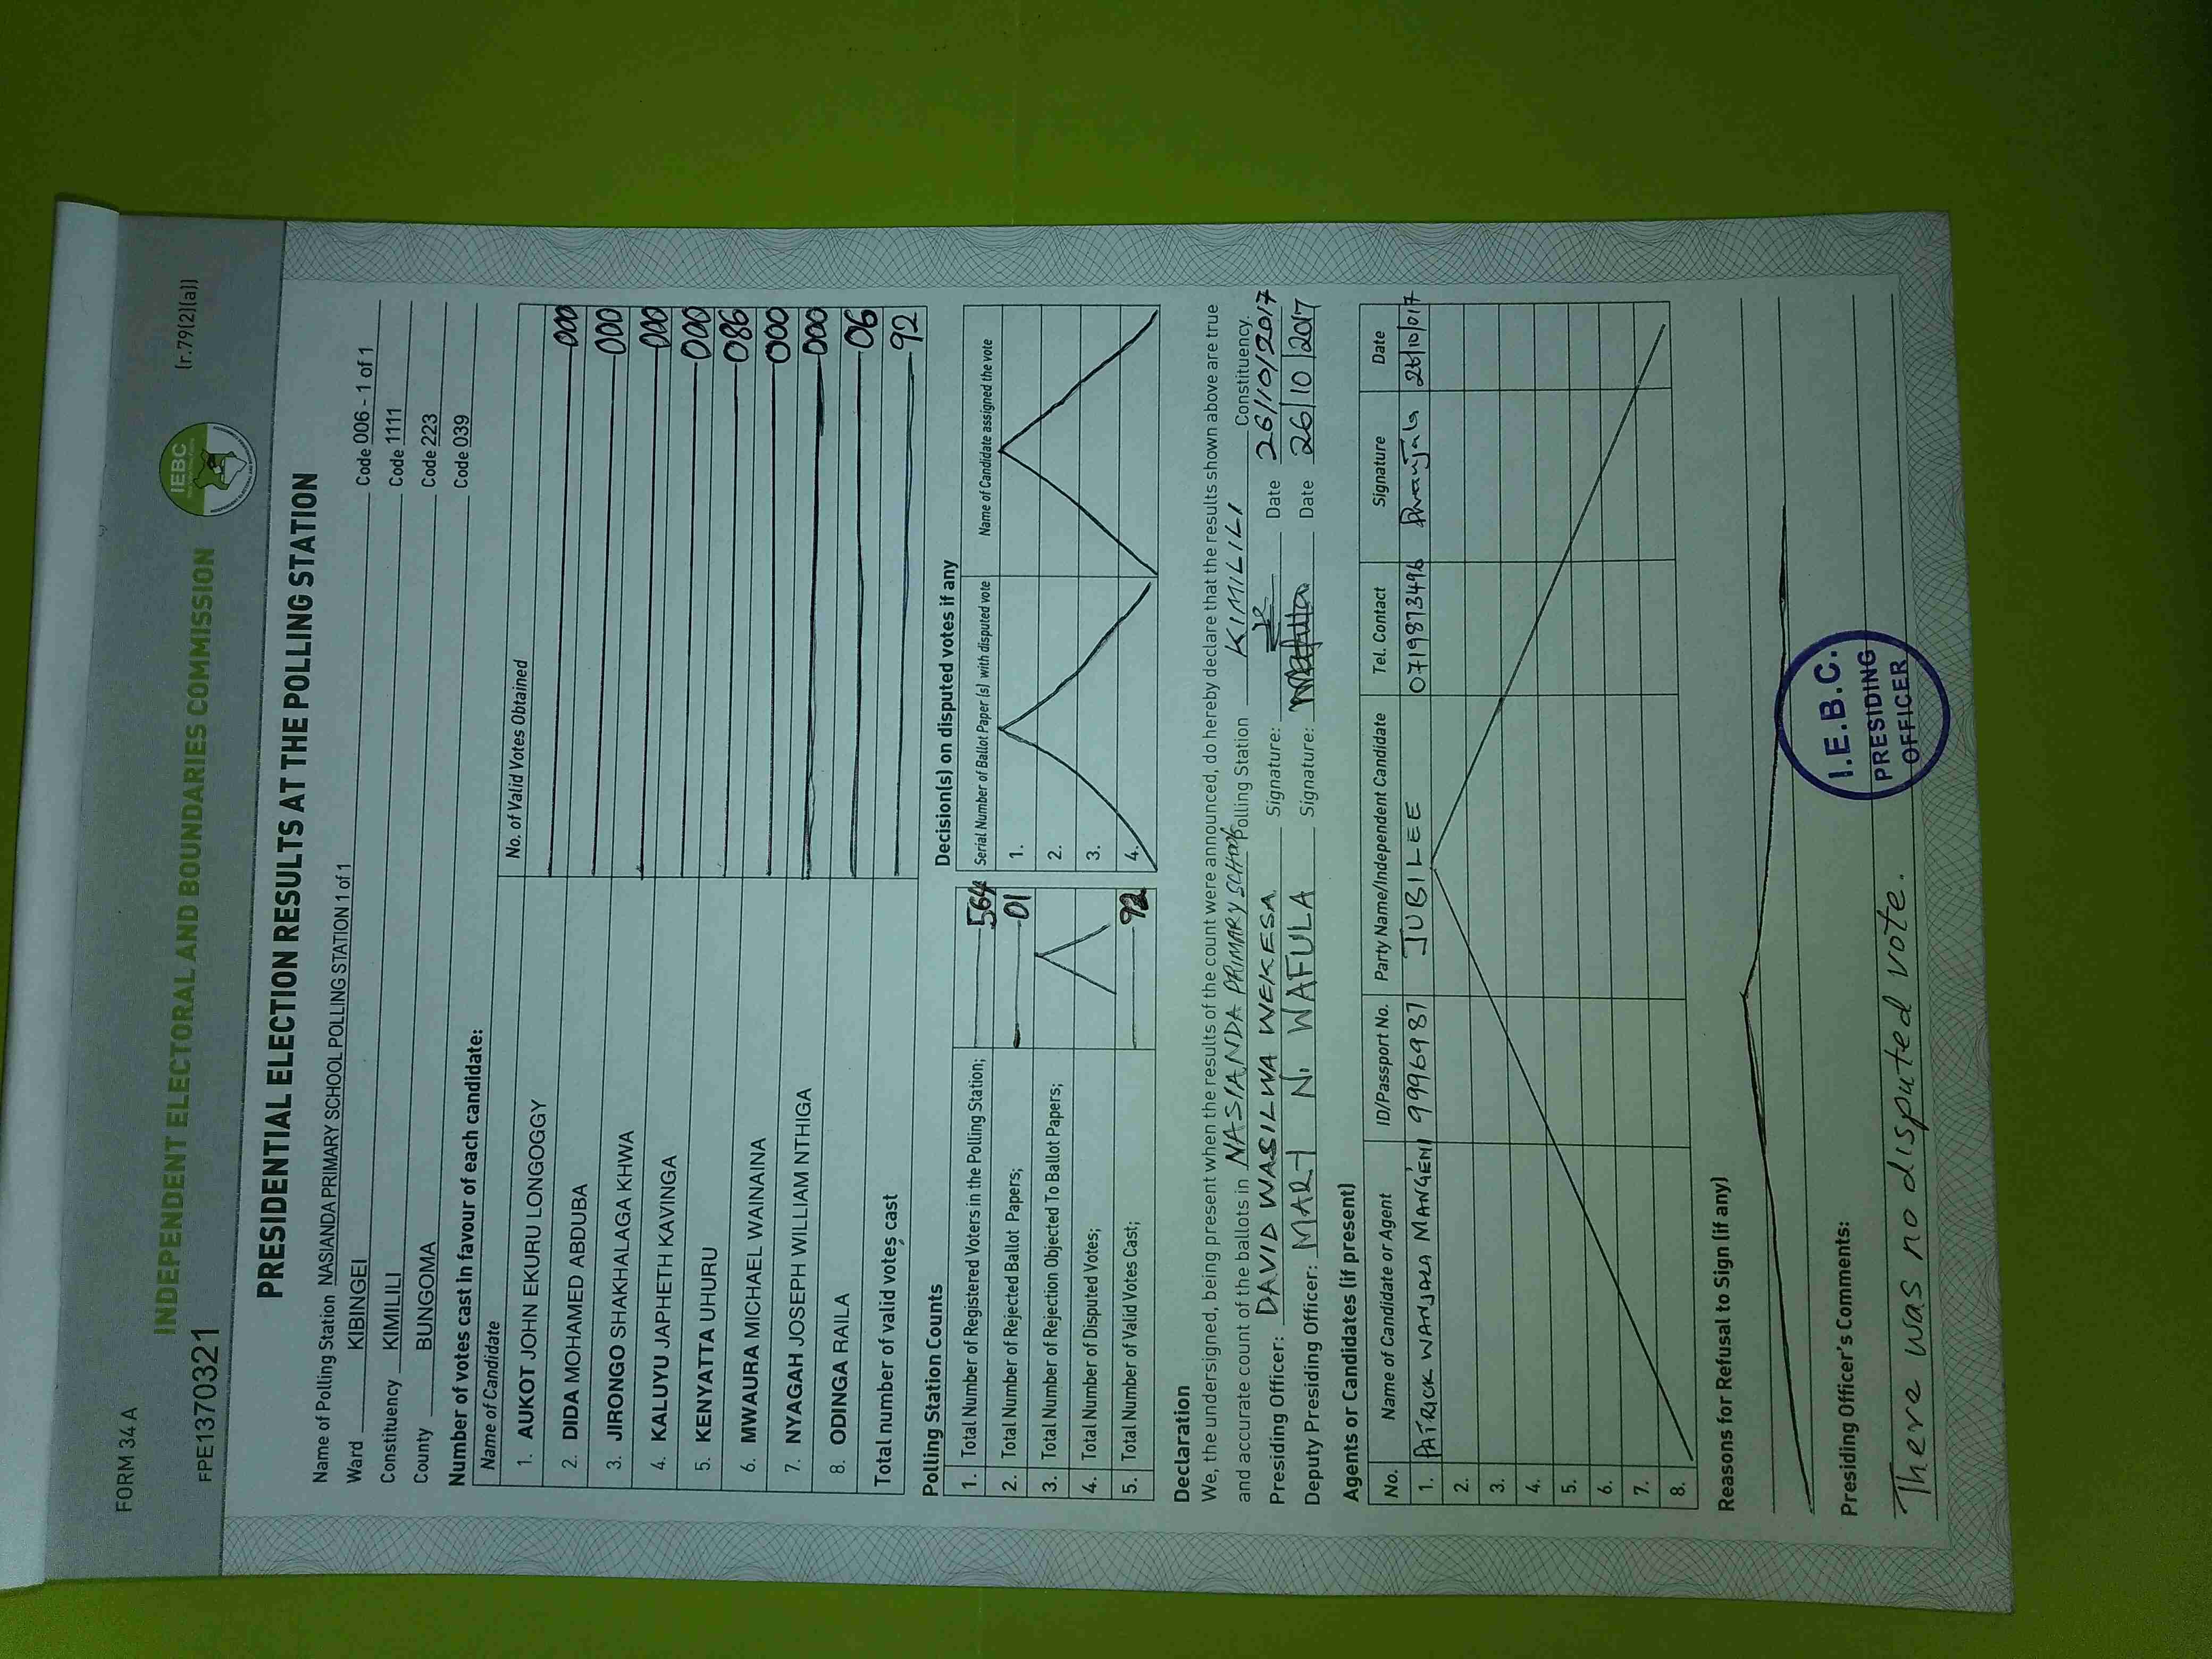 FORM 34 A
INDEPENDENT ELECTORAL AND BOUNDARIES COMMISSION
IEBC
(r.79(2)(a))
FPE1370321
PRESIDENTIAL ELECTION RESULTS AT THE POLLING STATION
Name of Polling Station NASIANDA PRIMARY SCHOOL POLLING STATION 1 of 1 Code 006 - 1 of 1
Ward KIBINGEI Code 1111
Constituency KIMILILI Code 223
County BUNGOMA Code 039
Number of votes cast in favour of each candidate:
Name of Candidate No. of Valid Votes Obtained
1. AUKOT JOHN EKURU LONGOGGY 000
2. DIDA MOHAMED ABDUBA 000
3. JIRONGO SHAKHALAGA KHWA 000
4. KALUYU JAPHETH KAVINGA 000
5. KENYATTA UHURU 086
6. MWAURA MICHAEL WAINAINA 000
7. NYAGAH JOSEPH WILLIAM NTHIGA 000
8. ODINGA RAILA 06
Total number of valid votes cast 92
Polling Station Counts
1. Total Number of Registered Voters in the Polling Station; 564
2. Total Number of Rejected Ballot Papers; 01
3. Total Number of Rejection Objected To Ballot Papers;
4. Total Number of Disputed Votes;
5. Total Number of Valid Votes Cast; 92
Decision(s) on disputed votes if any
Serial Number of Ballot Paper (s) with disputed vote Name of Candidate assigned the vote
1.
2.
3.
4.
Declaration
We, the undersigned, being present when the results of the count were announced, do hereby declare that the results shown above are true
and accurate count of the ballots in NASIANDA PRIMARY SCHOOL Polling Station KIMILILI Constituency.
Presiding Officer: DAVID WASILWA WEKESA Signature: Date 26/10/2017
Deputy Presiding Officer: MARY N. WAFULA Signature: Wafula Date 26/10/2017
Agents or Candidates (if present)
No. Name of Candidate or Agent ID/Passport No. Party Name/Independent Candidate Tel. Contact Signature Date
1. PATRICK WANJALA MANGENI 9996987 JUBILEE 0719873496 Pwanjala 26/10/017
2.
3.
4.
5.
6.
7.
8.
Reasons for Refusal to Sign (if any)
Presiding Officer's Comments:
There was no disputed vote.
I.E.B.C.
PRESIDING
OFFICER